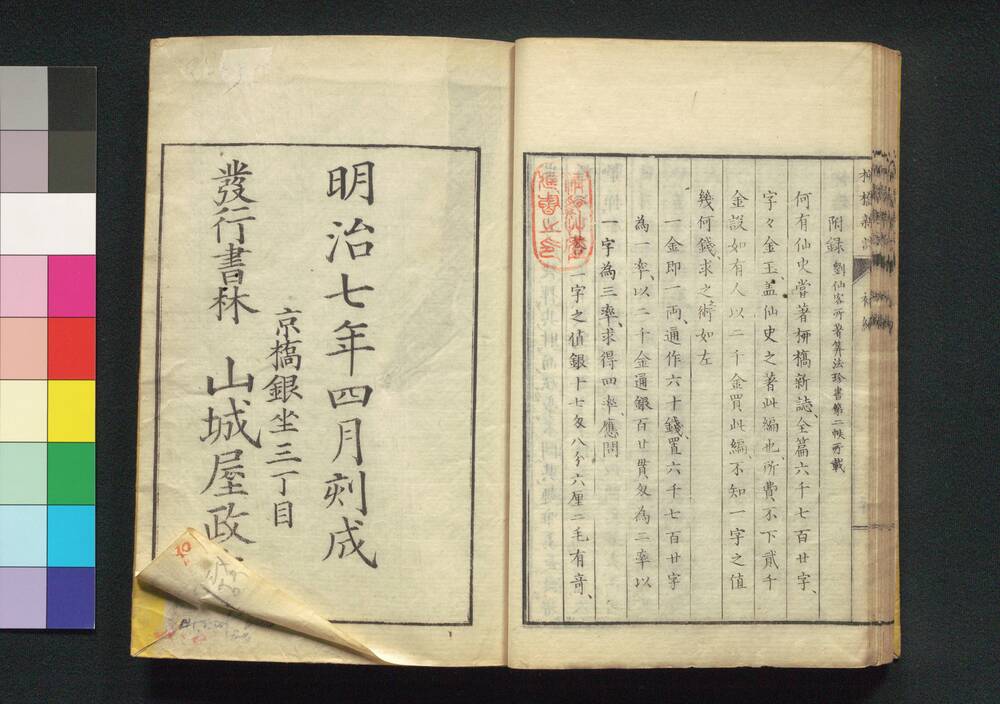 附録 劉仙客所著算法珍書第二帙所載
何有仙史嘗著柳橋新誌、全篇六千七百廿字、
字々金玉、盖仙史之著此編也、所費不下貳千
金設如有人以二千金買此編、不知一字之值
幾何錢、求之術如左
一金即一両、通作六十錢、置六千七百廿字
為一率、以二千金通銀百廿貫匁為二率以
一字為三率、求得四率、應問
答 一字之值銀十七匁八分六厘二毛有竒、
明治七年四月刻成
京橋銀坐三丁目
發行書林 山城屋政